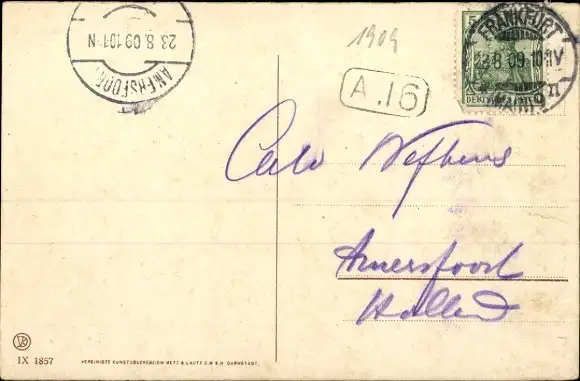 AMERSFOORT
23.8.09.10 1 N
1909
5
FRANKFURT
23.8.09.10-11V
DEUTSCHES REICH
A.16
Amersfoort
Holland
IX 1857
VEREINIGTE KUNSTDRUCKEREIEN METZ & LAUTZ G.M.B.H. DARMSTADT.